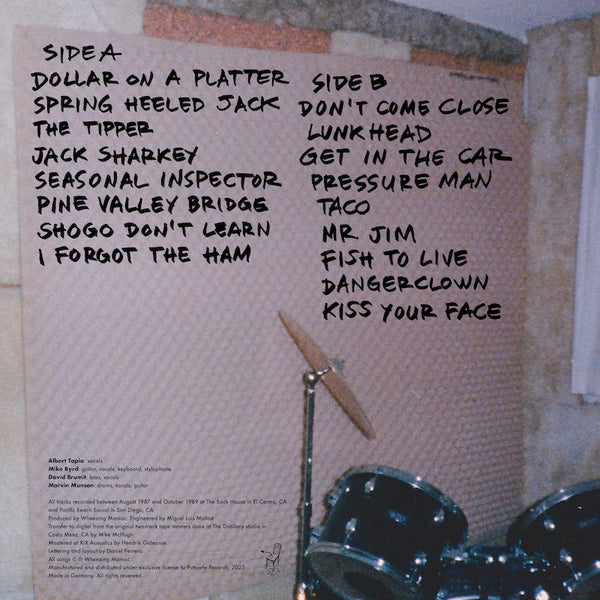 SIDE A
DOLLAR ON A PLATTER
SPRING HEELED JACK
THE TIPPER
JACK SHARKEY
SEASONAL INSPECTOR
PINE VALLEY BRIDGE
SHOGO DON'T LEARN
I FORGOT THE HAM
SIDE B
DON'T COME CLOSE
LUNKHEAD
GET IN THE CAR
PRESSURE MAN
TACO
MR JIM
FISH TO LIVE
DANGERCLOWN
KISS YOUR FACE
Albert Tapia: vocals
Mike Byrd: guitar, vocals, keyboard, stylophone
David Brumit: bass, vocals
Marvin Munson: drums, vocals, guitar
All tracks recorded between August 1987 and October 1989 at The Rock House in El Centro, CA
and Pacific Beach Sound in San Diego, CA
Produced by Wheezing Maniac. Engineered by Miguel Luis Muñoz
Transfer to digital from the original two-track tape masters done at The Distillery studio in
Costa Mesa, CA by Mike McHugh
Mastered at XIX Acoustics by Hendrik Gideonse
Lettering and layout by Daniel Ferrero
All songs © ℗ Wheezing Maniac
Manufactured and distributed under exclusive license to Futejefe Records, 2023
Made in Germany. All rights reserved.